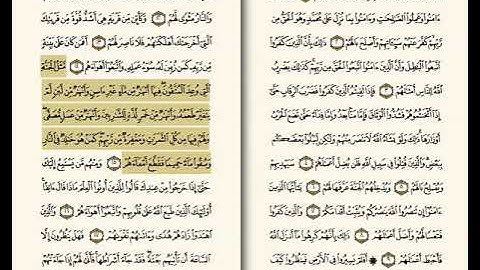 ءَامَنُوا۟ وَعَمِلُوا۟ ٱلصَّٰلِحَٰتِ وَءَامَنُوا۟ بِمَا نُزِّلَ عَلَىٰ مُحَمَّدٍ وَهُوَ ٱلْحَقُّ مِن
رَّبِّهِمْ كَفَّرَ عَنْهُمْ سَيِّـَٔاتِهِمْ وَأَصْلَحَ بَالَهُمْ ٢ ذَٰلِكَ بِأَنَّ ٱلَّذِينَ كَفَرُوا۟
ٱتَّبَعُوا۟ ٱلْبَٰطِلَ وَأَنَّ ٱلَّذِينَ ءَامَنُوا۟ ٱتَّبَعُوا۟ ٱلْحَقَّ مِن رَّبِّهِمْ كَذَٰلِكَ يَضْرِبُ
ٱللَّهُ لِلنَّاسِ أَمْثَٰلَهُمْ ٣ فَإِذَا لَقِيتُمُ ٱلَّذِينَ كَفَرُوا۟ فَضَرْبَ ٱلرِّقَابِ حَتَّىٰٓ
إِذَآ أَثْخَنتُمُوهُمْ فَشُدُّوا۟ ٱلْوَثَاقَ فَإِمَّا مَنًّۢا بَعْدُ وَإِمَّا فِدَآءً حَتَّىٰ تَضَعَ ٱلْحَرْبُ
أَوْزَارَهَا ذَٰلِكَ وَلَوْ يَشَآءُ ٱللَّهُ لَٱنتَصَرَ مِنْهُمْ وَلَٰكِن لِّيَبْلُوَا۟ بَعْضَكُم
بِبَعْضٍ وَٱلَّذِينَ قُتِلُوا۟ فِى سَبِيلِ ٱللَّهِ فَلَن يُضِلَّ أَعْمَٰلَهُمْ ٤ سَيَهْدِيهِمْ
وَيُصْلِحُ بَالَهُمْ ٥ وَيُدْخِلُهُمُ ٱلْجَنَّةَ عَرَّفَهَا لَهُمْ ٦ يَٰٓأَيُّهَا ٱلَّذِينَ
ءَامَنُوٓا۟ إِن تَنصُرُوا۟ ٱللَّهَ يَنصُرْكُمْ وَيُثَبِّتْ أَقْدَامَكُمْ ٧ وَٱلَّذِينَ
كَفَرُوا۟ فَتَعْسًا لَّهُمْ وَأَضَلَّ أَعْمَٰلَهُمْ ٨ ذَٰلِكَ بِأَنَّهُمْ كَرِهُوا۟ مَآ أَنزَلَ ٱللَّهُ
فَأَحْبَطَ أَعْمَٰلَهُمْ ٩ ۞ أَفَلَمْ يَسِيرُوا۟ فِى ٱلْأَرْضِ فَيَنظُرُوا۟ كَيْفَ
وَٱلنَّارُ مَثْوًى لَّهُمْ ١٢ وَكَأَيِّن مِّن قَرْيَةٍ هِىَ أَشَدُّ قُوَّةً مِّن قَرْيَتِكَ
ٱلَّتِىٓ أَخْرَجَتْكَ أَهْلَكْنَٰهُمْ فَلَا نَاصِرَ لَهُمْ ١٣ أَفَمَن كَانَ عَلَىٰ بَيِّنَةٍ
مِّن رَّبِّهِۦ كَمَن زُيِّنَ لَهُۥ سُوٓءُ عَمَلِهِۦ وَٱتَّبَعُوٓا۟ أَهْوَآءَهُم ١٤ مَّثَلُ ٱلْجَنَّةِ
ٱلَّتِى وُعِدَ ٱلْمُتَّقُونَ فِيهَآ أَنْهَٰرٌ مِّن مَّآءٍ غَيْرِ ءَاسِنٍ وَأَنْهَٰرٌ مِّن لَّبَنٍ لَّمْ
يَتَغَيَّرْ طَعْمُهُۥ وَأَنْهَٰرٌ مِّنْ خَمْرٍ لَّذَّةٍ لِّلشَّٰرِبِينَ وَأَنْهَٰرٌ مِّنْ عَسَلٍ مُّصَفًّى
وَلَهُمْ فِيهَا مِن كُلِّ ٱلثَّمَرَٰتِ وَمَغْفِرَةٌ مِّن رَّبِّهِمْ كَمَنْ هُوَ خَٰلِدٌ فِى ٱلنَّارِ
وَسُقُوا۟ مَآءً حَمِيمًا فَقَطَّعَ أَمْعَآءَهُمْ ١٥ وَمِنْهُم مَّن يَسْتَمِعُ إِلَيْكَ
حَتَّىٰٓ إِذَا خَرَجُوا۟ مِنْ عِندِكَ قَالُوا۟ لِلَّذِينَ أُوتُوا۟ ٱلْعِلْمَ مَاذَا قَالَ ءَانِفًا
أُو۟لَٰٓئِكَ ٱلَّذِينَ طَبَعَ ٱللَّهُ عَلَىٰ قُلُوبِهِمْ وَٱتَّبَعُوٓا۟ أَهْوَآءَهُمْ ١٦ وَٱلَّذِينَ
ٱهْتَدَوْا۟ زَادَهُمْ هُدًى وَءَاتَىٰهُمْ تَقْوَىٰهُمْ ١٧ فَهَلْ يَنظُرُونَ إِلَّا
ٱلسَّاعَةَ أَن تَأْتِيَهُم بَغْتَةً فَقَدْ جَآءَ أَشْرَاطُهَا فَأَنَّىٰ لَهُمْ إِذَا جَآءَتْهُمْ